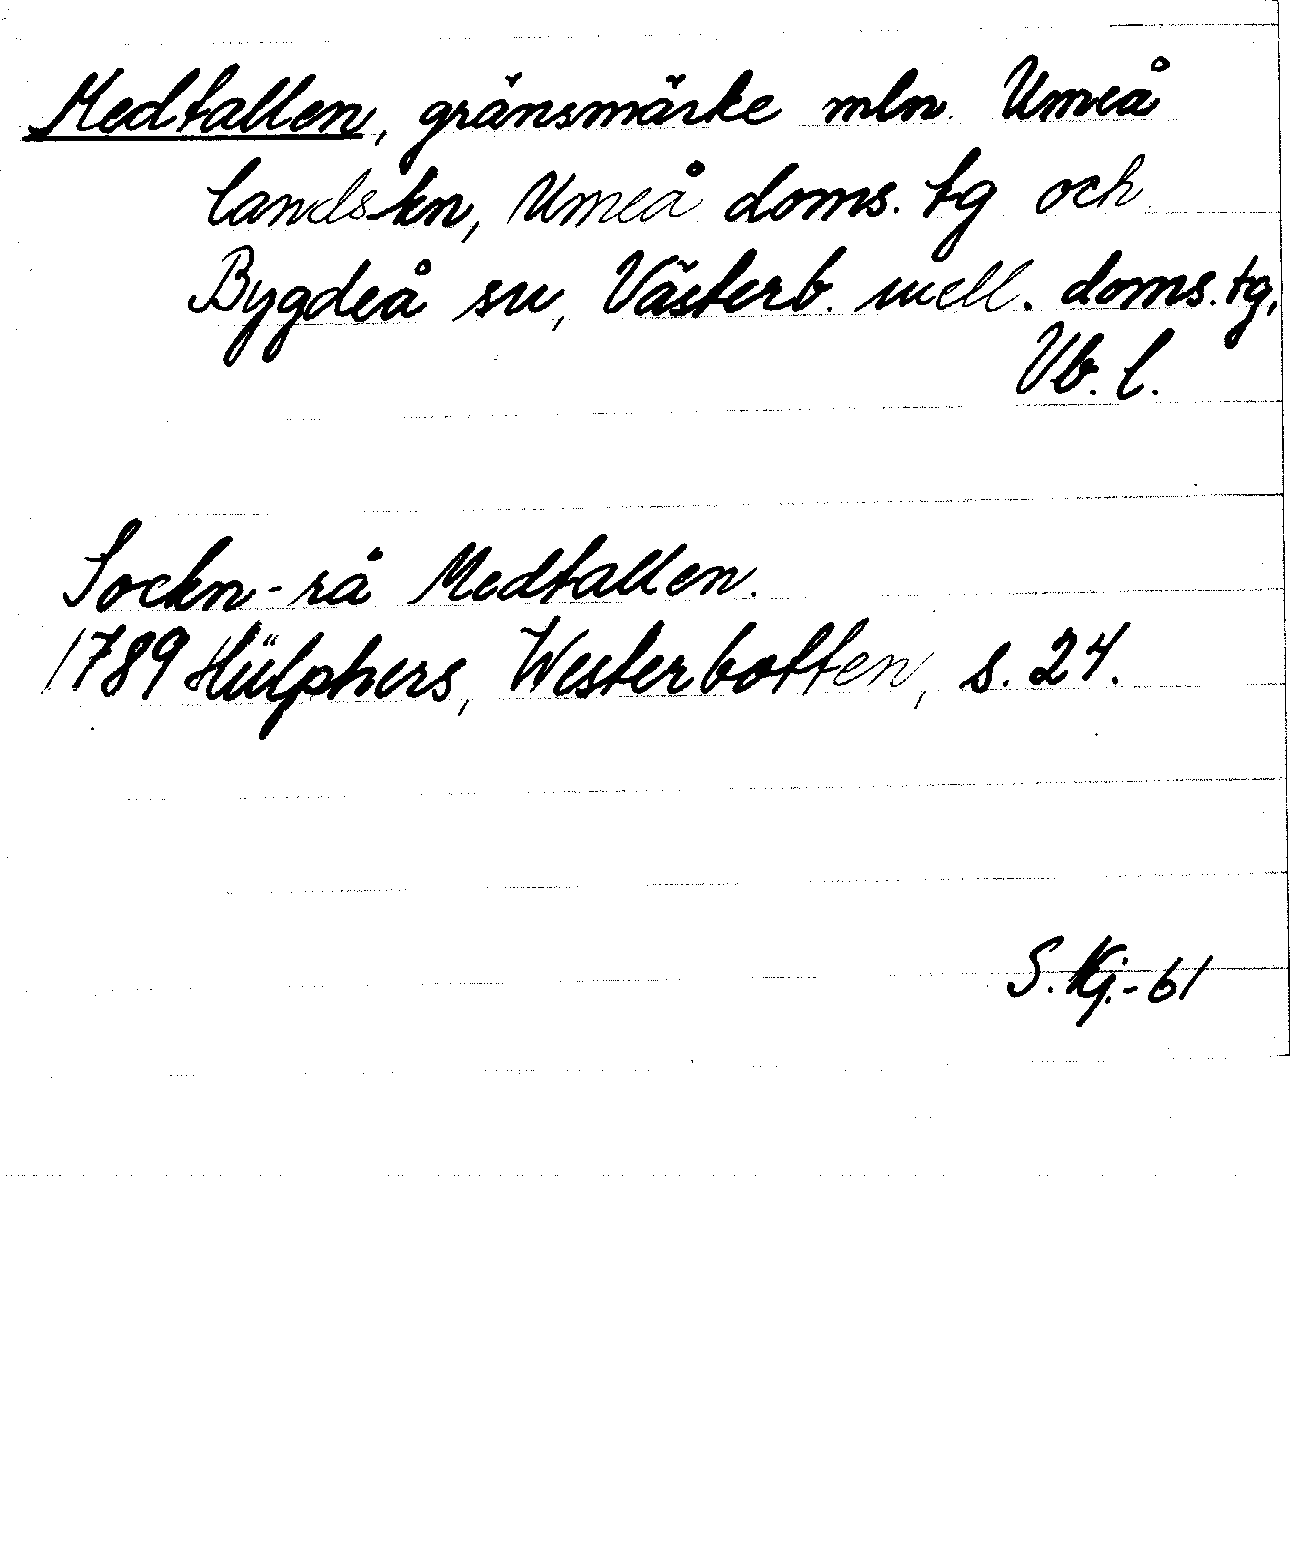 Medtallen, gränsmärke mln Umeå
landskn, Umeå doms. tg och
Bygdeå sn, Västerb. mell. doms. tg,
Vb. l.
Sockn-rå Medtallen.
1789 Hülphers, Westerbotten, s. 24.
S. Kj.-61